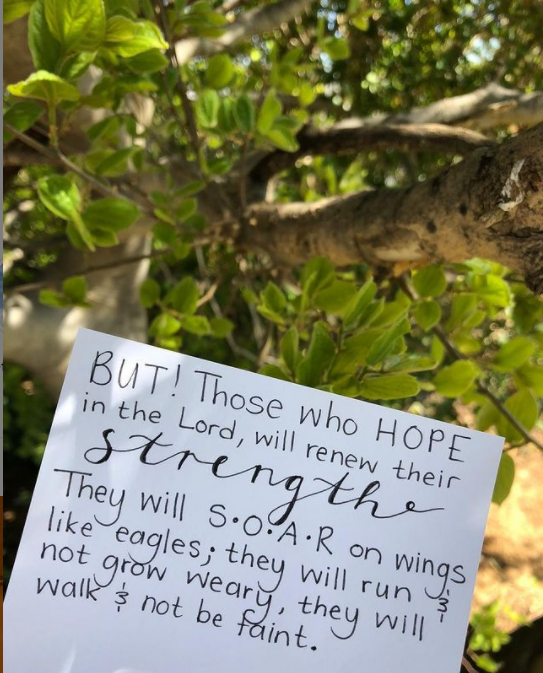 BUT! Those who HOPE
in the Lord, will renew their
strengthe
They will S.O.A.R on wings
like eagles; they will run &
not grow weary, they will
walk & not be faint.